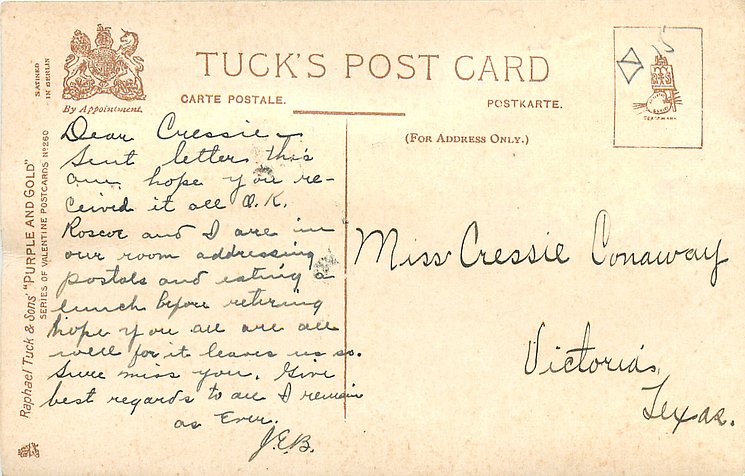 TUCK'S POST CARD
By Appointment.
CARTE POSTALE.
POSTKARTE.
(FOR ADDRESS ONLY.)
SATINED
IN BERLIN
Raphael Tuck & Sons' "PURPLE AND GOLD"
SERIES OF VALENTINE POSTCARDS Nº 260
TRADE MARK
Dear Cressie –
Sent letter this
am. hope you re-
ceived it all O.K.
Roscoe and I are in
our room addressing
postals and eating a
lunch before retiring
hope you all are all
well for it leaves us so.
Sure miss you. Give
best regards to all I remain
as Ever.
J.E.B.
Miss Cressie Conaway
Victoria,
Texas.